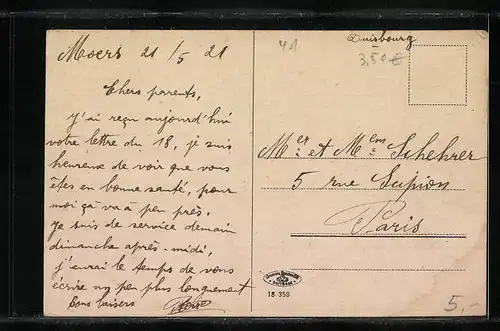 Moers 21/5 21
Chers parents,
j'ai reçu aujourd'hui
votre lettre du 18, je suis
heureux de voir que vous
êtes en bonne santé, pour
moi ça va à peu près.
Je suis de service demain
dimanche après-midi,
j'aurai le temps de vous
écrire un peu plus longuement
Bons baisers
41
Duisbourg
3,50 €
Mer et Mem Schehrer
5 rue Supion
Paris
18-358
5,-